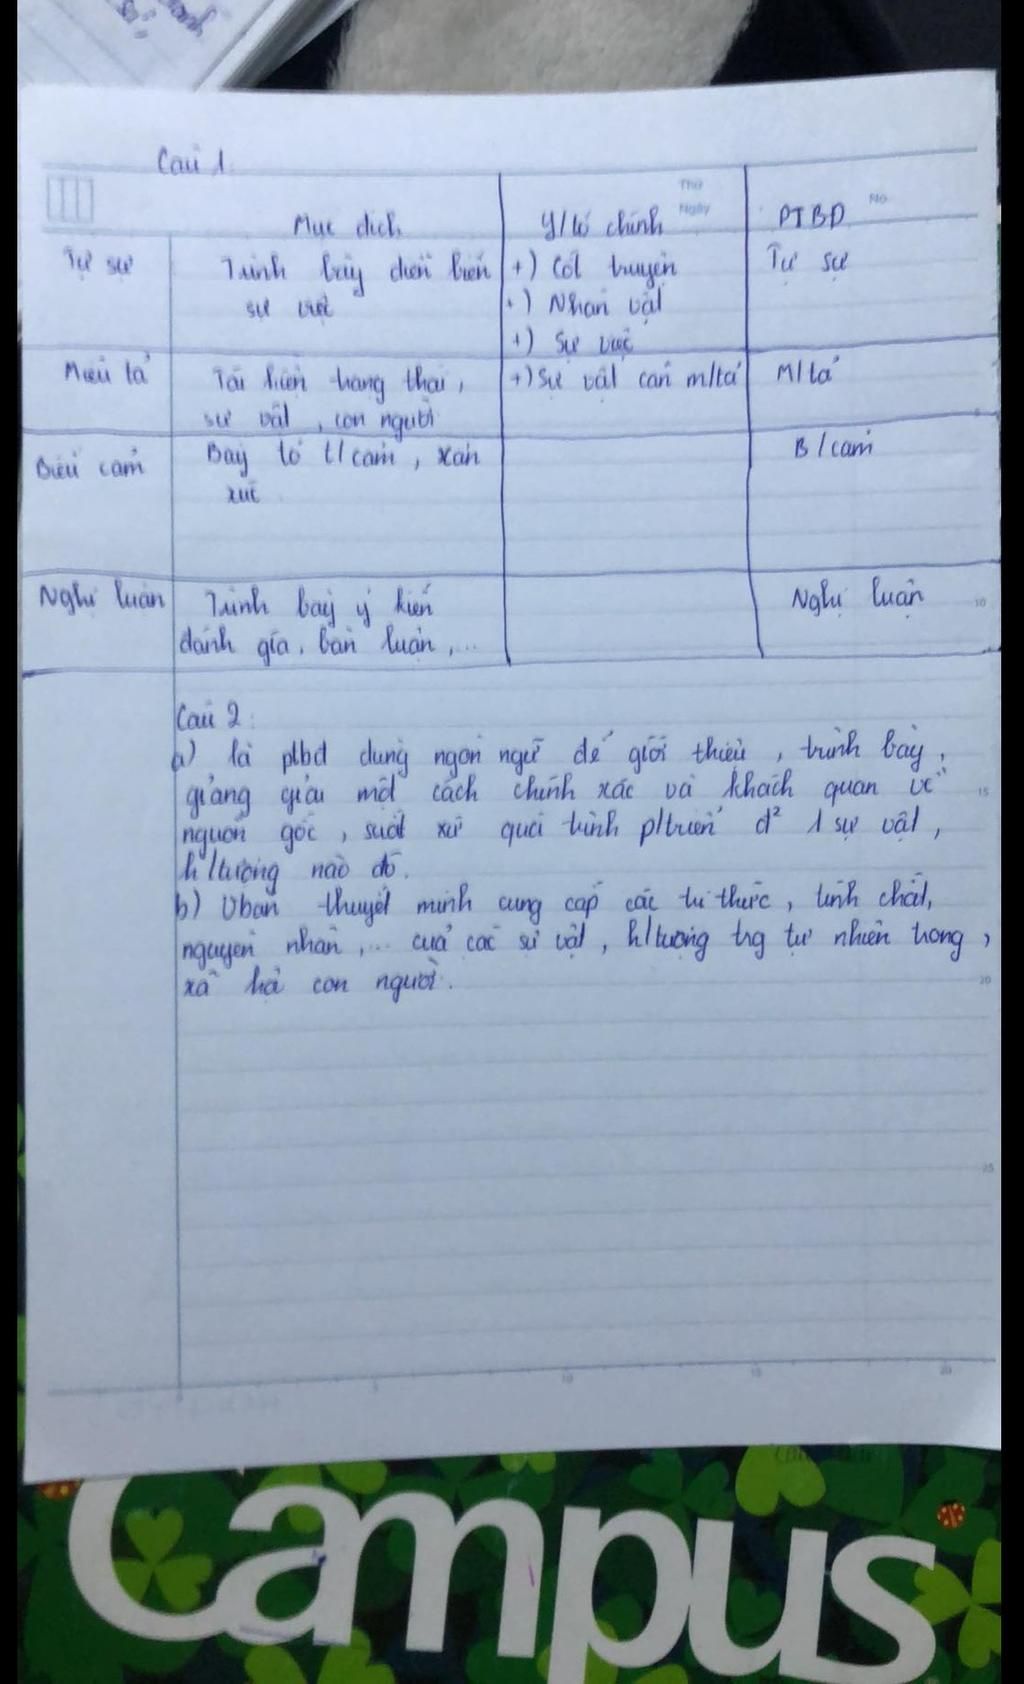 Câu 1.
Thứ
Ngày
No
Mục đích
Y/tố chính
PTBĐ
Tự sự
Trình bày diễn biến
sự việc
+) Cốt truyện
+) Nhân vật
+) Sự việc
Tự sự
Miêu tả
Tái hiện trạng thái,
sự vật, con người
+) Sự vật cần m/tả
M/tả
Biểu cảm
Bày tỏ t/cảm, xan
xúc
B/cảm
Nghị luận
Trình bày ý kiến
đánh giá, bàn luận,...
Nghị luận
10
Câu 2:
a) là ptbđ dùng ngôn ngữ để giới thiệu, trình bày,
giảng giải một cách chính xác và khách quan về
15
nguồn gốc, suất xứ quá trình p/triển đ² 1 sự vật,
h/tượng nào đó.
b) Vbản thuyết minh cung cấp các tri thức, tính chất,
nguyên nhân,... của các sự vật, h/tượng trg tự nhiên trong,
xã hội con người.
20
25
5
10
15
20
Campus